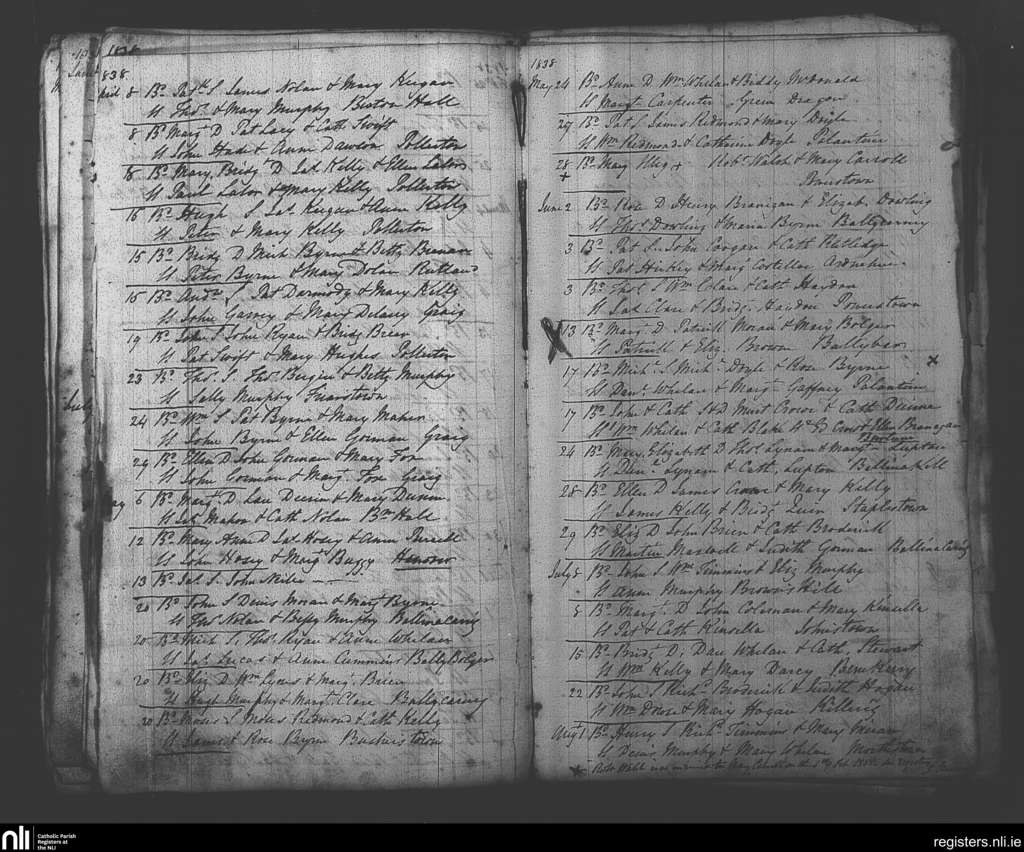 1838
1838
April 8 Bd. Patk. S James Nolan & Mary Keegan
S Thos. & Mary Murphy Burton Hall
8 Bd. Margt. D Pat Lacy & Cath. Swift
S John Hade & Anne Dawson Pollerton
8 Bd. Mary, Bridgt. D Jas. Kelly & Ellen Lalor
S Paul Lalor & Mary Kelly Pollerton
15 Bd. Hugh S Jas. Keegan & Anne Kelly
S Peter & Mary Kelly Pollerton
15 Bd. Bridgt. D Mich Byrne & Betty Brenan
S Peter Byrne & Mary Dolan Rutland
15 Bd. Andw. S. Pat Darmody & Mary Kelly
S John Garvey & Mary Delaney Graig
19 Bd. John S John Ryan & Bridgt. Brien
S Pat Swift & Mary Hughes Pollerton
23 Bd. Thos. S. Thos. Bergin & Betty Murphy
S Sally Murphy Friarstown
24 Bd. Wm. S Pat Byrne & Mary Maher
S John Byrne & Ellen Gorman Graig
29 Bd. Ellen D John Gorman & Mary Fox
S John Gorman & Margt. Fox Graig
May 6 Bd. Margt. D Lau Deerin & Mary Dunn
S Jas. Mahon & Cath Nolan Bn. Hall
12 Bd. Mary Anne D Jas. Hosey & Anne
S John Hosey & Margt. Buggy
13 Bd. Jas. S. John
20 Bd. John S Denis Moran & Margt. Byrne
S Thos. Nolan & Bessy Murphy Ballinacarrig
20 Bd. Mich S. Thos. Ryan & Anne Whelan
S Jas. Lucas & Anne Cummins BallyBolger
20 Bd. Eliz D Wm. Lyons & Margt. Brien
S Hugh Murphy & Margt. Clare Ballycarney
20 Bd. Moses S Moses Redmond & Cath Kelly
S James & Rose Byrne Busherstown
1838
May 24 Bd. Anne D Wm. Whelan & Biddy McDonald
S Margt. Carpenter Green Dragon
27 Bd. Pat S. James Redmond & Mary Doyle
S Wm. Redmond & Catherine Doyle Palantine
28 Bd. Mary Illeg + Robt. Walsh & Mary Carroll
+ Powerstown
June 2 Bd. Rose D Henry Branigan & Elizab. Dowling
S Thos. Dowling & Maria Byrne Ballycarney
3 Bd. Pat S. John & Cath Rutledge
S Pat Hickey & Margt. Costelloe
3 Bd. Thos. S Wm. Clare & Cath Haydon
S Jas. Clare & Bridgt. Haydon Powerstown
13 Bd. Margt. D. Patrick Moran & Mary Bolger
S Patrick & Eliz. Brown Ballybar
17 Bd. Michl. S Michl. Doyle & Rose Byrne
S Danl. Whelan & Margt. Gaffney Palantine
17 Bd. John & Cath S&D Murt Crowe & Cath
Ss Wm. Whelan & Cath Blake Ellen Branagan
24 Bd. Mary, Elizabeth D Thos. Lynam & Margt. Lupton
S Lynam & Cath. Lupton Bellinakill
28 Bd. Ellen D James Crowe & Mary Kelly
S James Kelly & Bridgt. Quin Staplestown
29 Bd. Eliz D John Brien & Cath Broderick
S Martin Maxwell & Judith Gorman Ballinacarrig
July 5 Bd. John S Wm. Timmins & Eliz Murphy
S Anne Murphy Browns Hill
8 Bd. Margt. D John Coleman & Mary Kinsella
S Pat & Cath Kinsella Johnstown
15 Bd. Bridgt. D. Whelan & Cath. Stewart
S Wm. Kelly & Mary Darcy Bennekerry
22 Bd. John S Richd. Broderick & Judith Hogan
S Wm. Dowse & Mary Hogan Killerig
Augt. 1 Bd. Henry S Richd. Timmins & Mary Moran
S Denis Murphy & Mary Whelan
nli Catholic Parish Registers at the NLI
registers.nli.ie